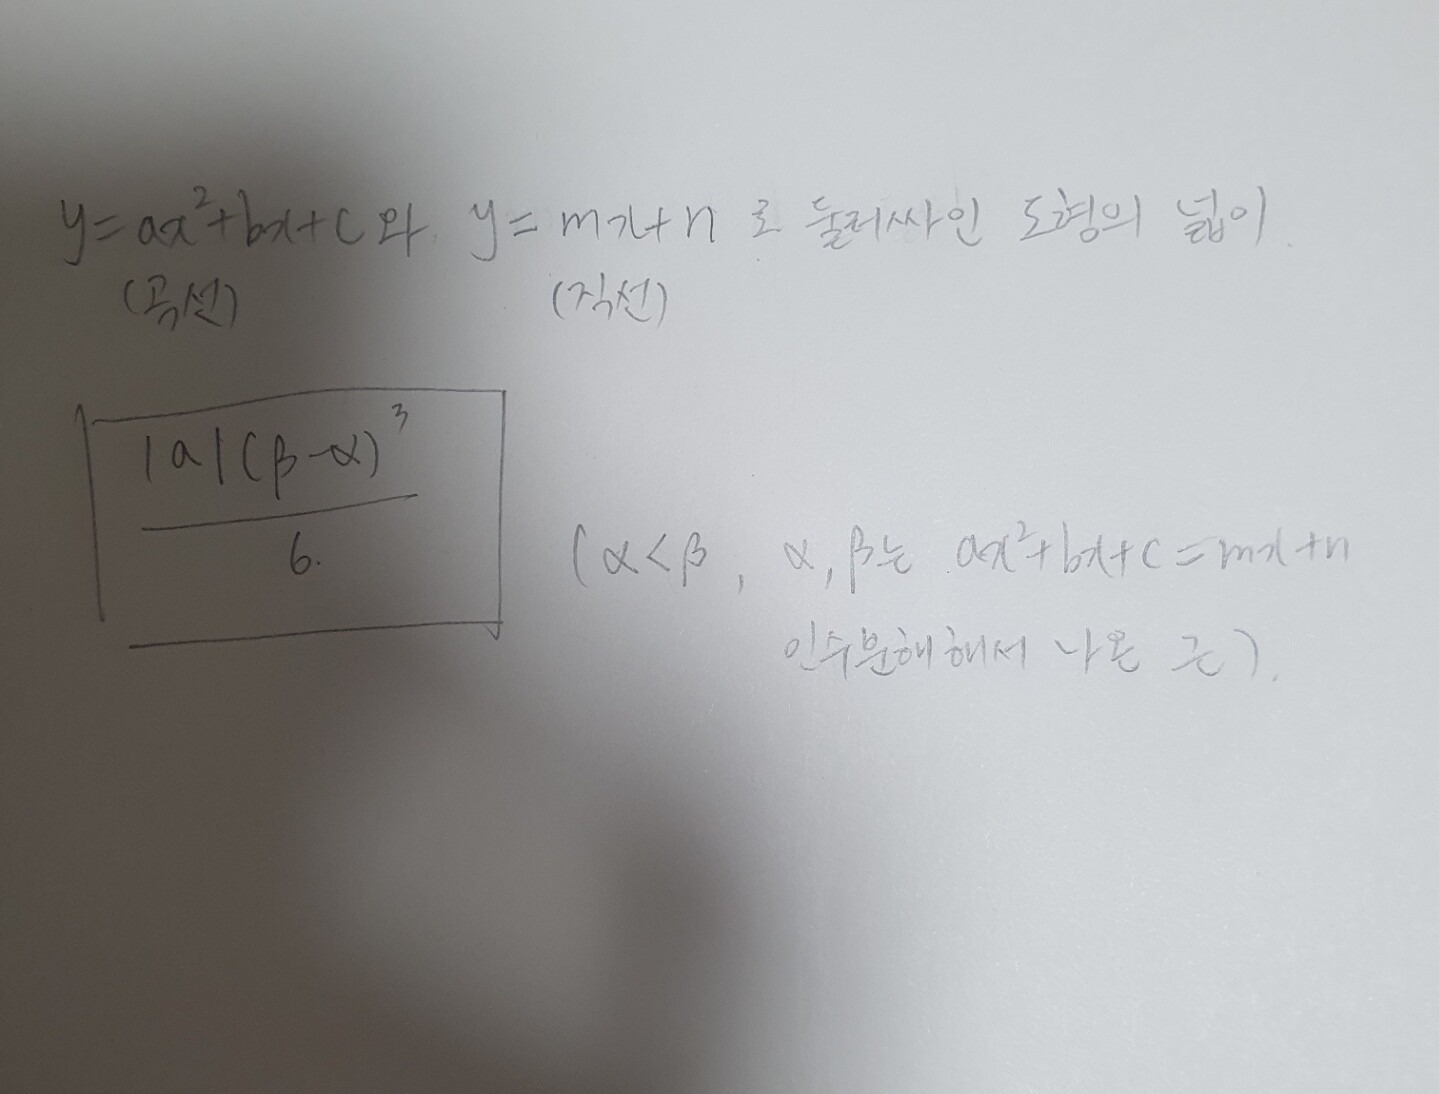 y=ax²+bx+c와 y=mx+n 로 둘러싸인 도형의 넓이.
(곡선) (직선)
|a|(β-α)³
6.
(α<β, α,β는 ax²+bx+c=mx+n
인수분해해서 나온 근).